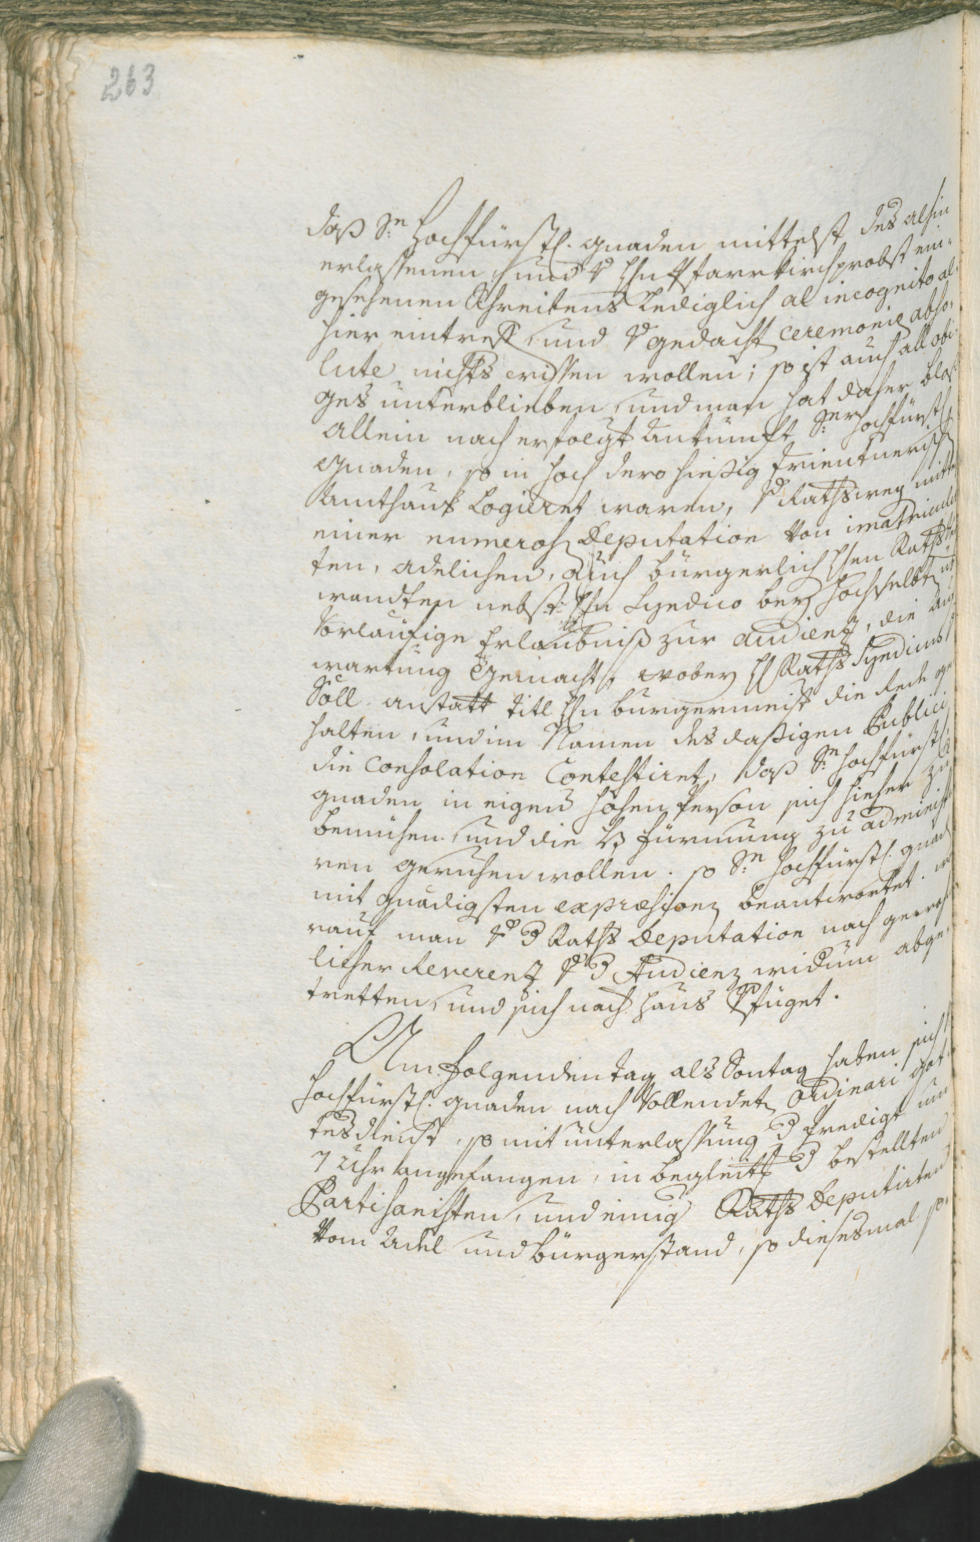 263
daß Sr. hochfürstl. gnaden mittelst des alhin
erlassenen, und Hn Pfarrkirchprobst ein-
gesehenen Schreibens lediglich al incognito al-
hier eintreff und gedacht Ceremonie abso-
lute nichts wissen wollen; so ist auch all obi-
ges unterblieben, und man hat daher blos
allein nach erfolgt ankunft Sr. hochfürstl.
gnaden, so in hoch dero hiesig Trientnerisch
Amthaus Logiret waren, Rathsweg mitt
einer numerosen Deputation von imatricula
ten, adelichen, auch bürgerlichen Raths
wandten nebst Hn Syndico bey hochselbt
Vorläufige Erlaubniß zur audienz, die Auf
wartung gemacht, wobey H Raths Syndicus
Söll anstatt titl Hn burgermeist die Rede ge
halten, und im Namen des dasigen Publici
die Consolation Contestiret, daß Sr. hochfürstl.
gnaden in eigen hohen Person sich hieher zu
bemühen, und die Fürmung zu administ
ren geruhen wollen. so Sr. hochfürstl. gnad
mit gnädigsten expression beantwortet. wo
rauf man Raths Deputation nach gewoh
licher Reverenz Audienz widum abge-
tretten, und sich nach haus Vfüget.
Am folgenden tag als Sontag haben sich
hochfürstl. gnaden nach Vollendet ordinari Got-
tesdienst, so mit unterlassung d Predigt um
7 Uhr angefangen, in begleit d bestellten
Partisanisten, und einig Raths Deputirten
vom Adel und bürgerstand, so diesesmal so